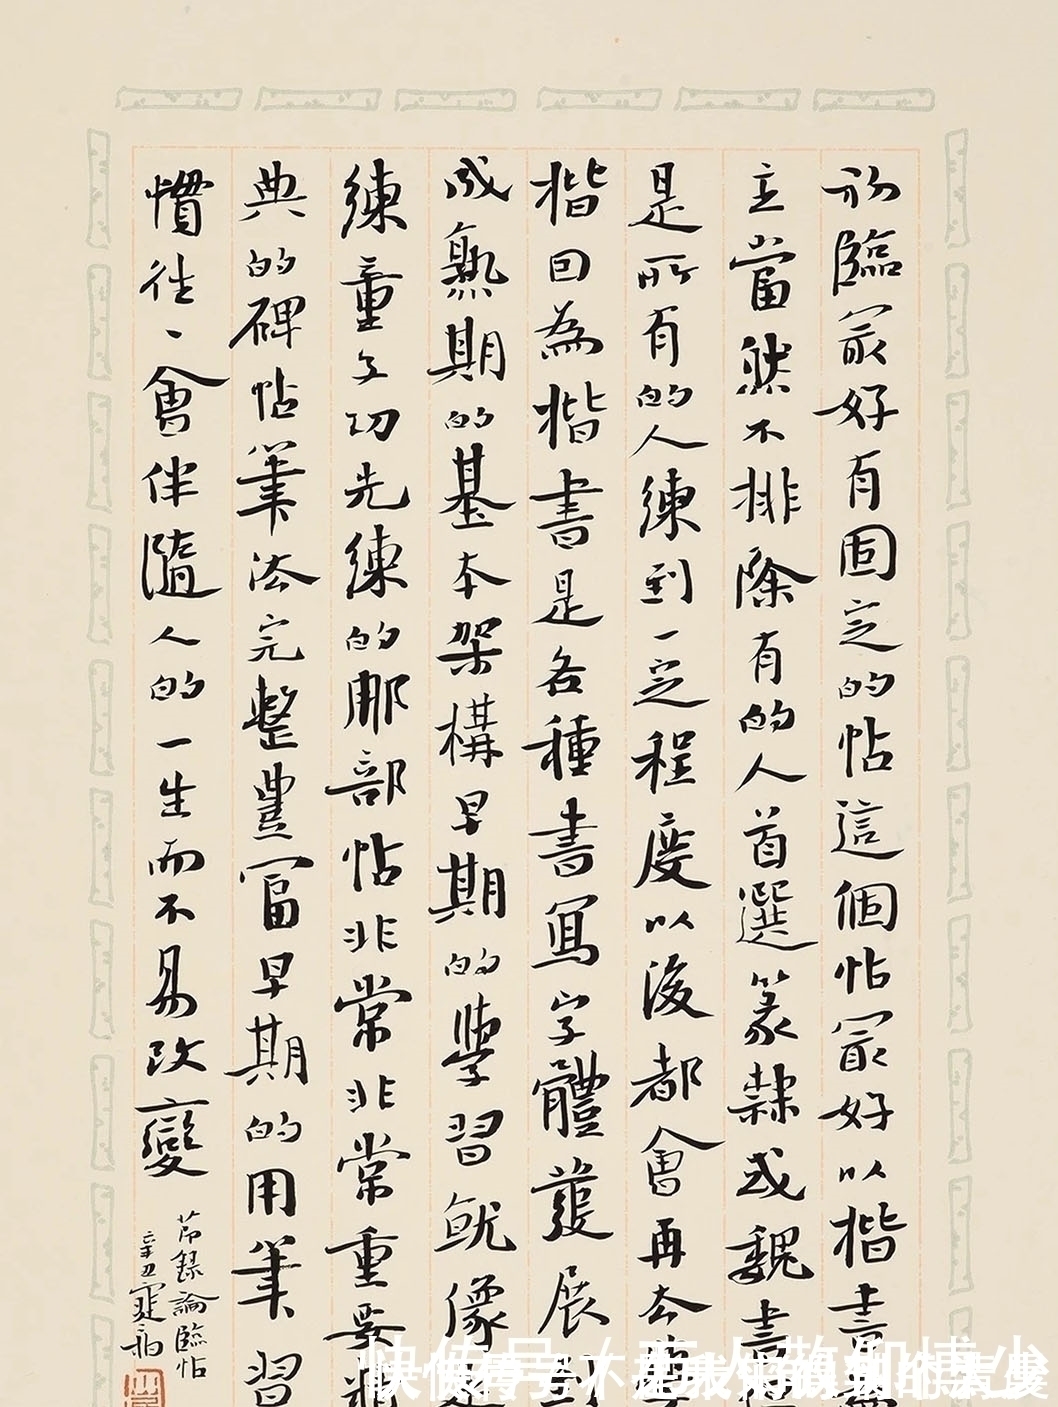 初臨最好有固定的帖這個帖最好以楷書為
主當然不排除有的人首選篆隸或魏書
是所有的人練到一定程度以後都會再去
楷回為楷書是各種書寫字體發展到
成熟期的基本架構早期的學習就像是
練童子功先練的那部帖非常非常重要
典的碑帖筆法完整豐富早期的用筆習
慣往往會伴隨人的一生而不易改變
節錄論臨帖
辛丑
快傳号/